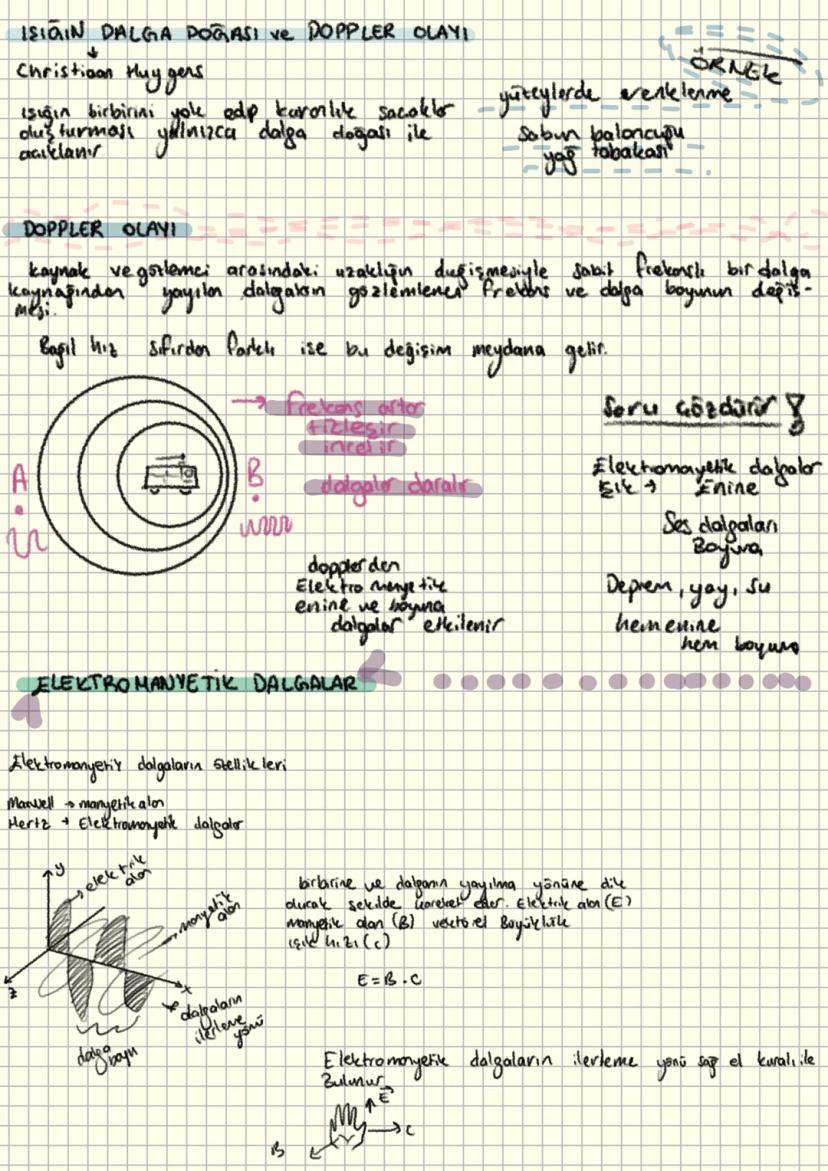 IŞIĞIN DALGA DOĞASI ve DOPPLER OLAYI
Christiaan Huygens
ışığın birbirini yok edp karanlık saçaklar
oluşturması yalnızca dalga doğası ile
açıklanır
ÖRNEK
yüzeylerde renklenme
sabun baloncuğu
yağ tabakası
DOPPLER OLAYI
kaynak ve gözlemci arasındaki uzaklığın değişmesiyle sabit frekanslı bir dalga
kaynağından yayılan dalgaların gözlemlenen frekans ve dalga boyunun değiş-
mesi.
Bağıl hız sıfırdan farklı ise bu değişim meydana gelir.
A
B
→ frekans artar
tizleşir
incelir
dalgalar daralır
dopplerden
Elektro manyetik
enine ve boyuna
dalgalar etkilenir
Soru Çözdürür !
Elektromayetik dalgalar
Işık → Enine
Ses dalgaları
Boyuna
Deprem, yay, su
hem enine
hem boyuna
ELEKTROMANYETİK DALGALAR
Elektromanyetik dalgaların özellikleri
Maxwell → manyetik alan
Hertz → Elektromanyetik dalgalar
y
→ elektrik
alan
→ manyetik
alan
z
x
dalgaların
ilerleme
yönü
dalga
boyu
birbirine ve dalganın yayılma yönüne dik
olacak şekilde hareket eder. Elektrik alan (E)
manyetik alan (B) vektörel Büyüklük
ışık hızı (c)
E = B . C
Elektromanyetik dalgaların ilerleme yönü sağ el kuralı ile
Bulunur
E
C
B